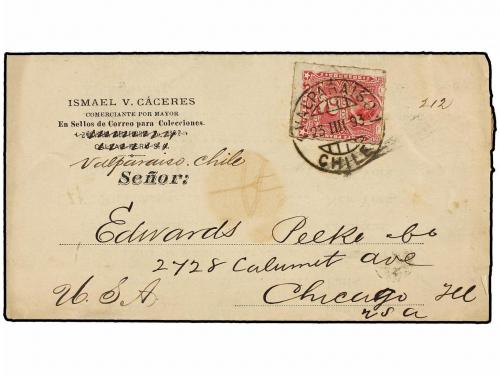 ISMAEL V. CÁCERES
COMERCIANTE POR MAYOR
En Sellos de Correo para Colecciones.
Valparaiso. Chile
Señor:
VALPARAISO
25 III 93
CHILE
212
Edwards Peeke & Co
2728 Calumet Ave
U.S.A
Chicago Ill
USA